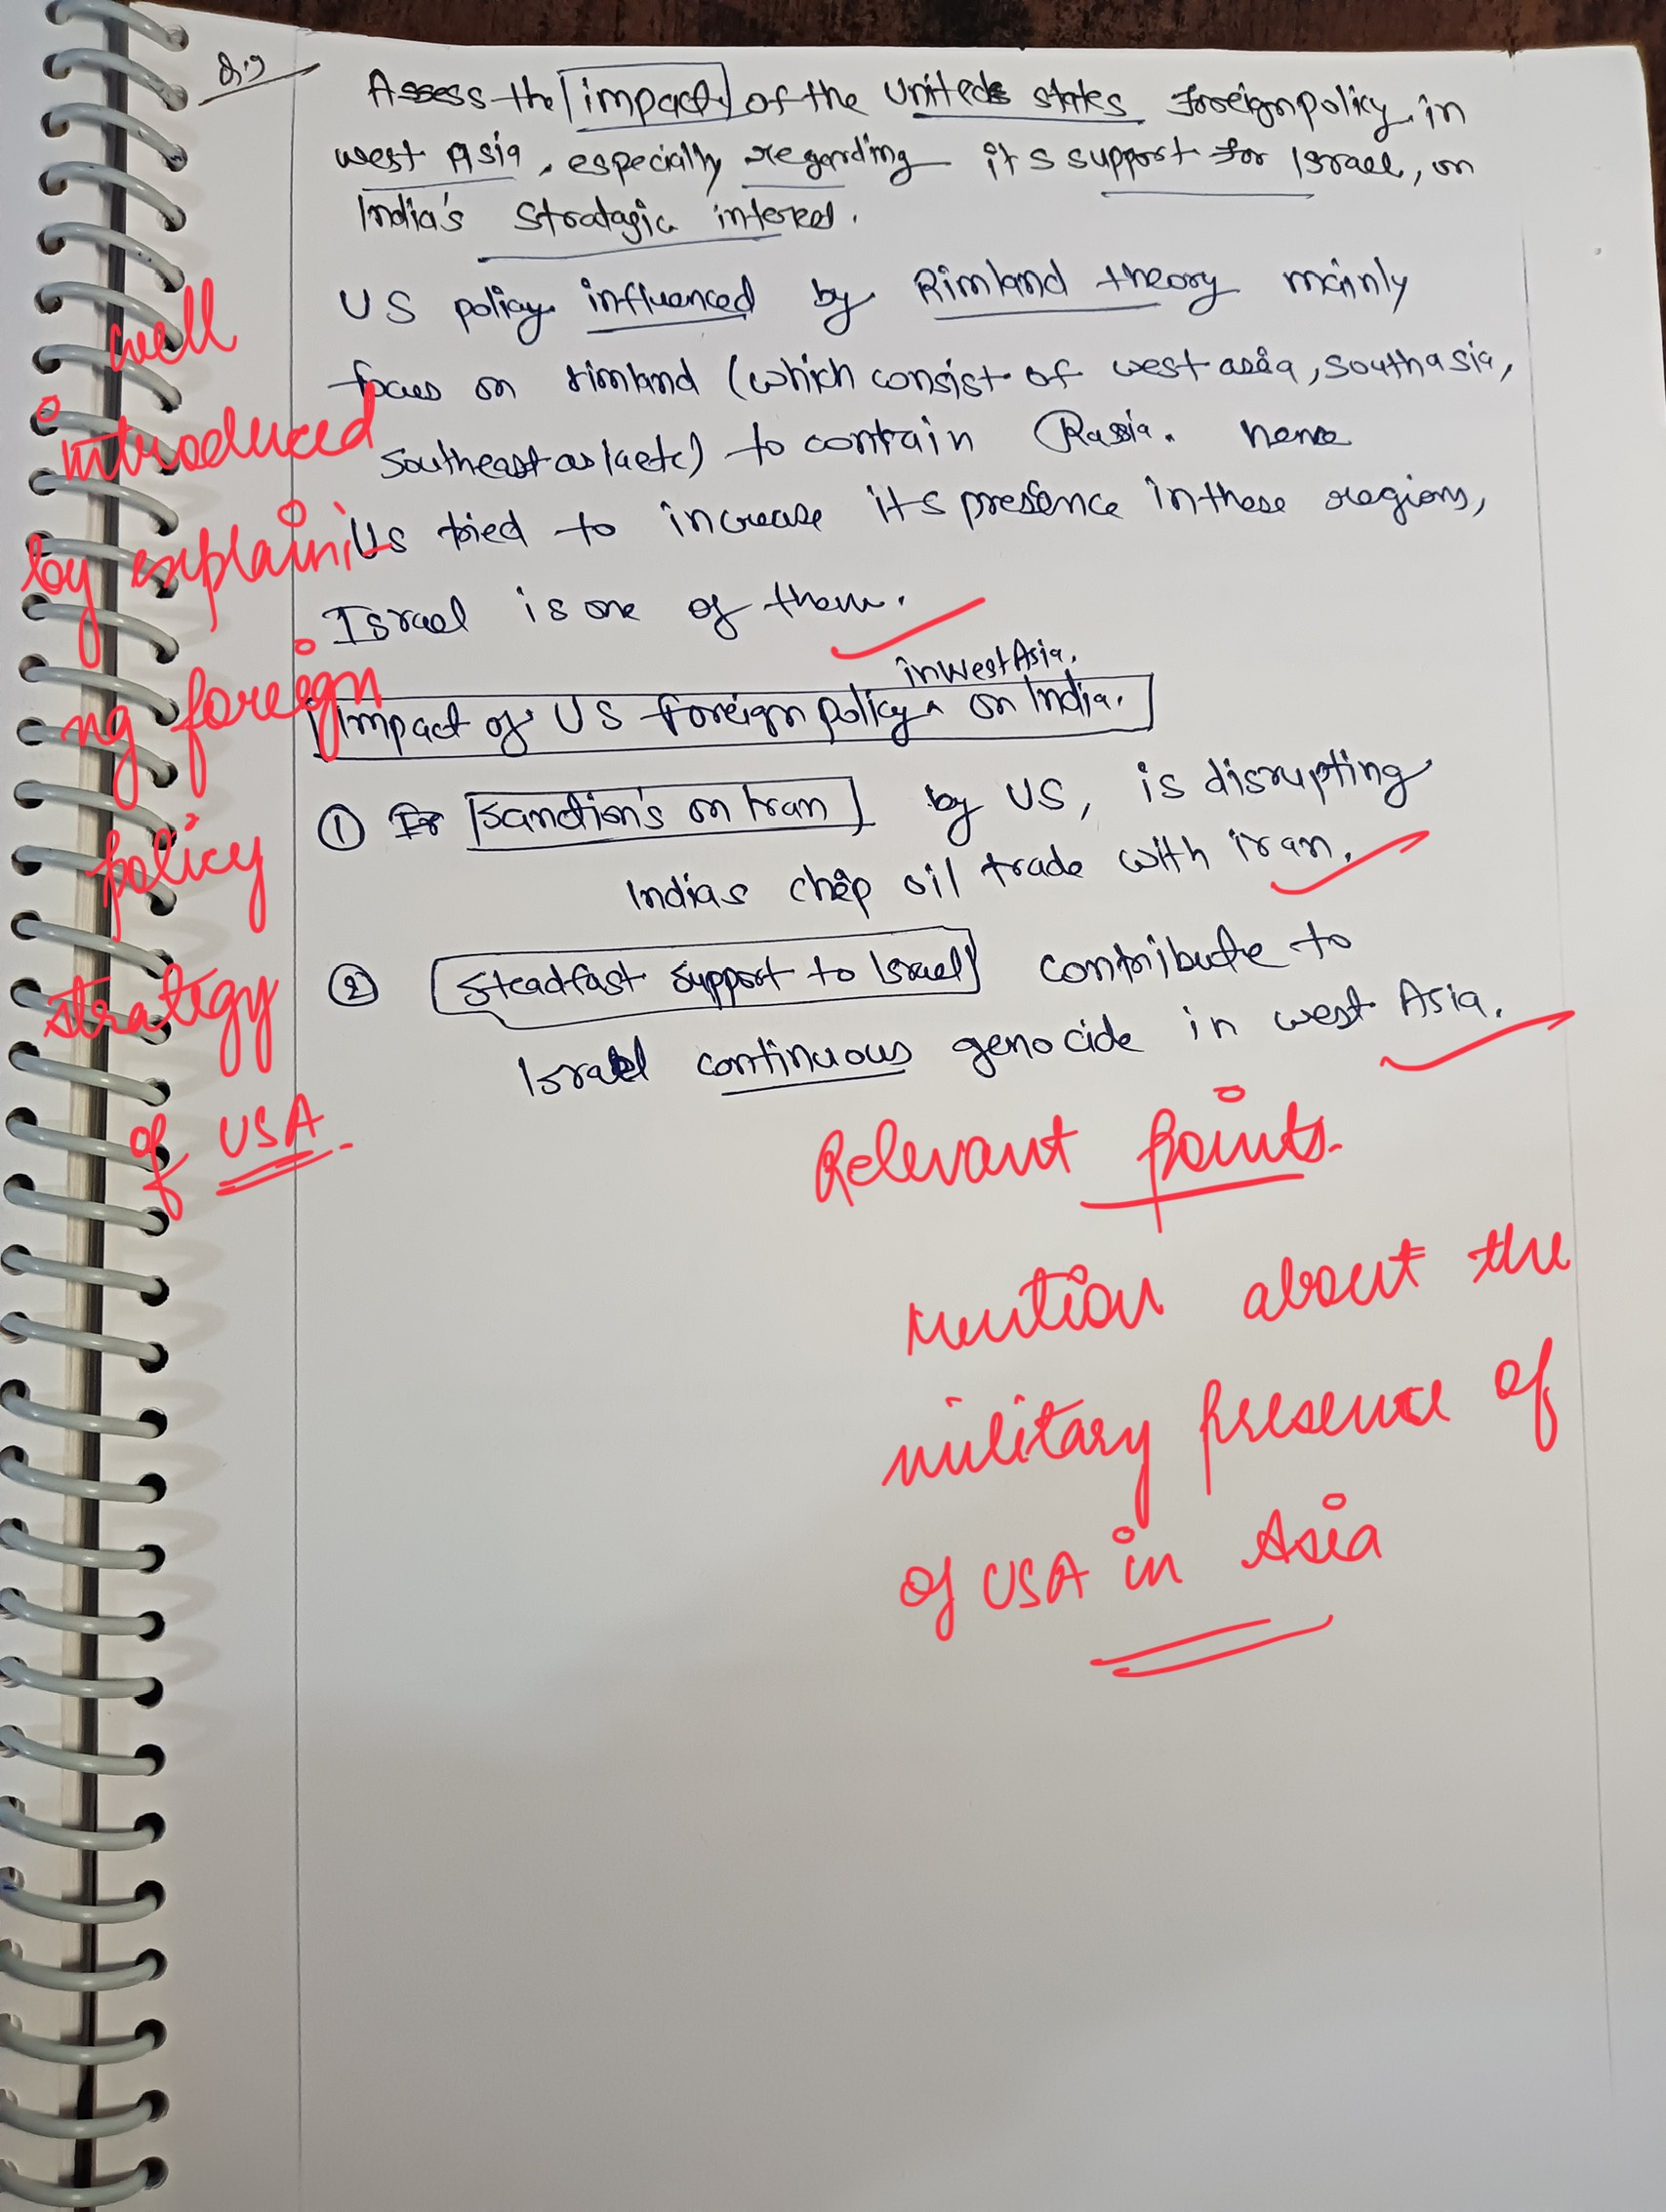 Q.9
Assess the impact of the United states foreign policy in
west Asia, especially regarding its support for Israel, on
India's Stratagic interest.
US policy influenced by Rimland theory mainly
focus on rimland (which consist of west asia, South asia,
Southeast asia etc) to contain Russia. hence
US tried to increase its presence in these regions,
Israel is one of them.
in West Asia.
Impact of US foreign policy on India.
① Sanction's on Iran by US, is disrupting
Indias chep oil trade with iran.
② Steadfast Support to Israel contribute to
Israel continuous genocide in west Asia.
well
introduced
by explaini
ng foreign
policy
strategy
of USA.
Relevant points.
Mention about the
military presence of
of USA in Asia